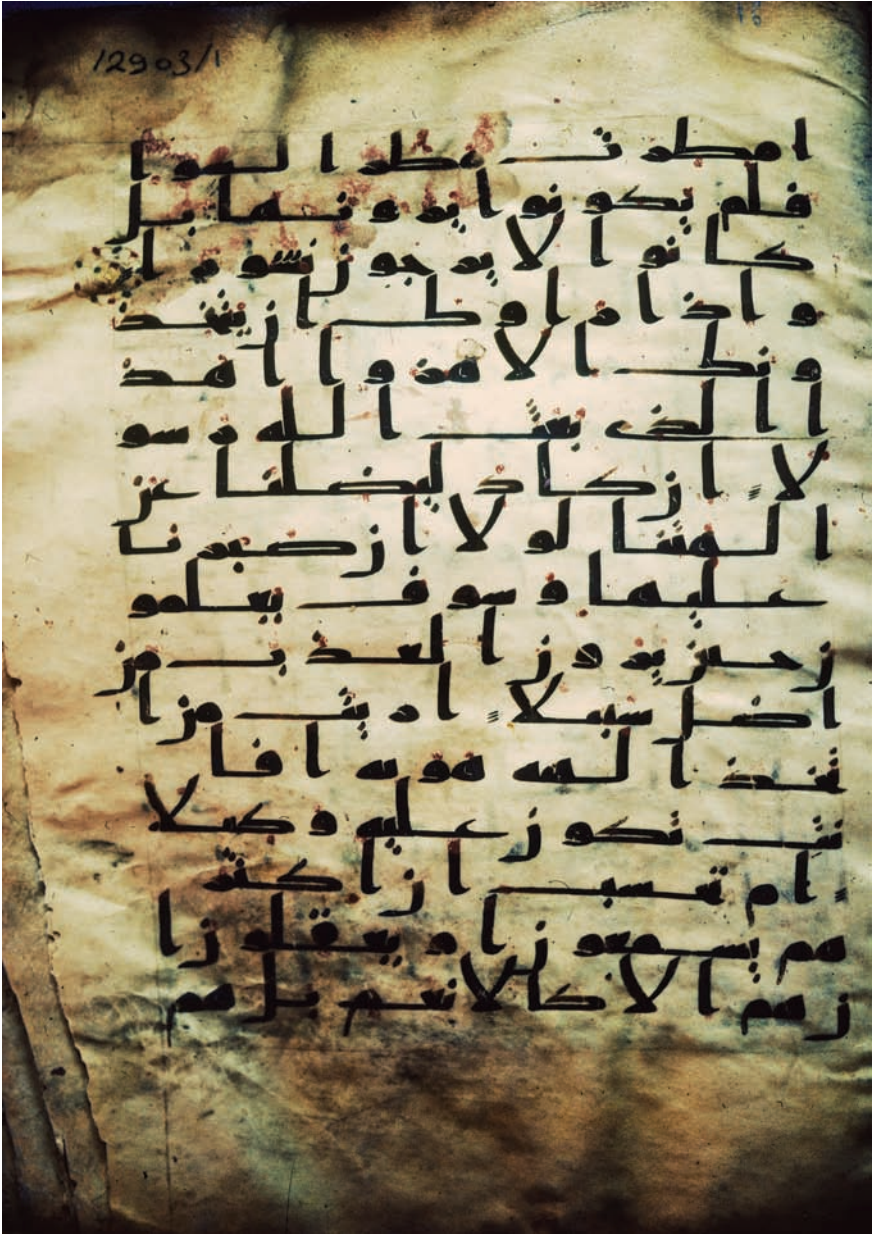 12903/1
امطرت مطر السوا
فلم يكونوا يرونها بل
كانوا لا يرجون نشورا
واذا راوك ان يتخذ
ونك الا هزوا اهذ
ا الذي بعث الله رسو
لا ان كاد ليضلنا عن
الهتنا لولا ان صبرنا
عليها وسوف يعلمو
ن حين يرون العذب من
اضل سبيلا اريت من ا
تخذ الهه هويه افا
نت تكون عليه وكيلا
ام تحسب ان اكثر
هم يسمعون او يعقلون ا
ن هم الا كالانعم بل هم